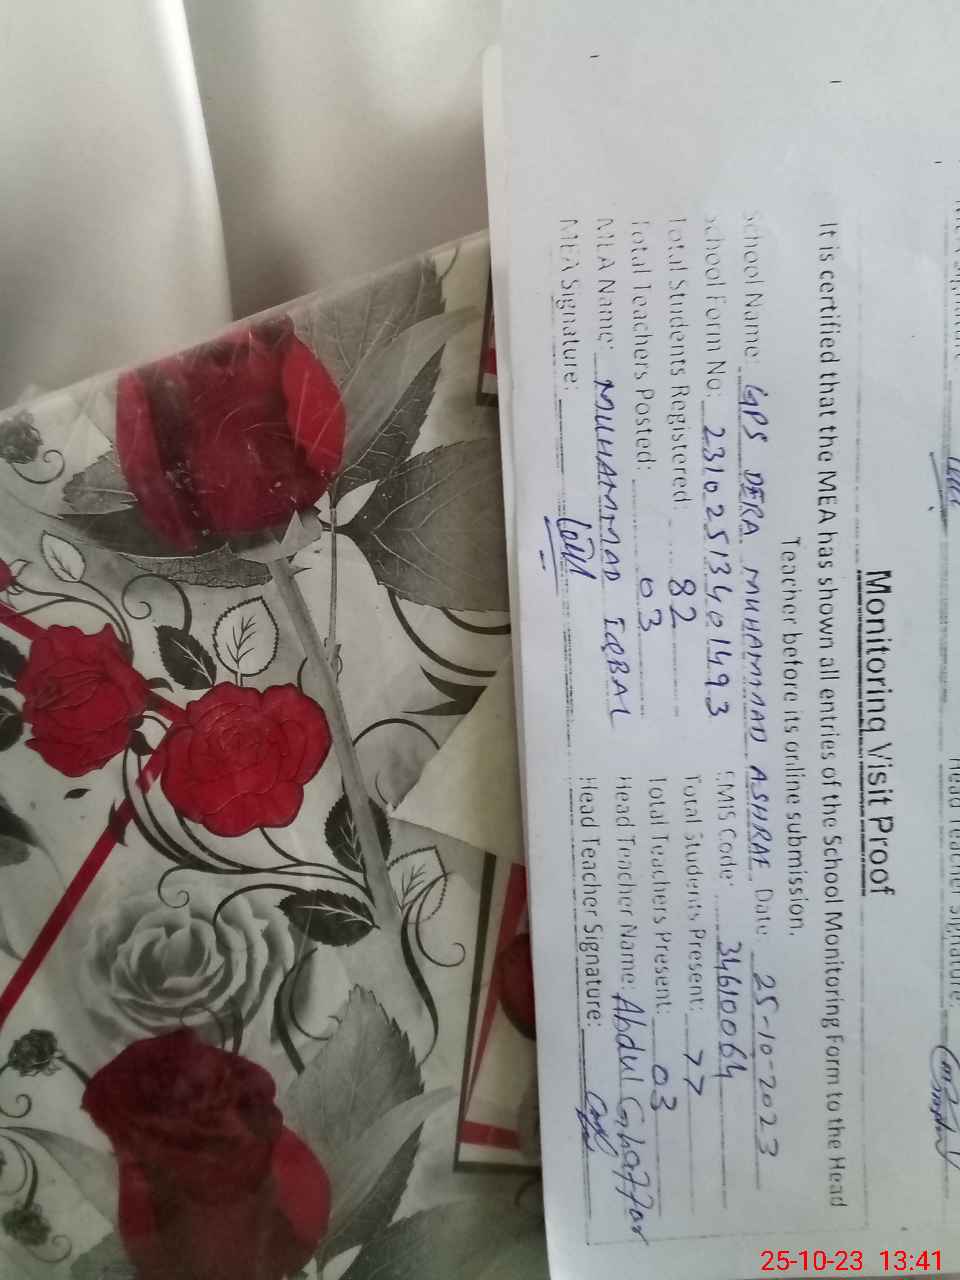 Monitoring Visit Proof
It is certified that the MEA has shown all entries of the School Monitoring Form to the Head
Teacher before its online submission.
School Name: GPS DERA MUHAMMAD ASHRAF Date 25-10-2023
School Form No: 23102513401493 EMIS Code: 34610064
Total Students Registered: 82 Total Students Present: 77
Total Teachers Posted: 03 Total Teachers Present: 03
MEA Name: MUHAMMAD IQBAL Head Teacher Name: Abdul Ghaffar
MEA Signature: Head Teacher Signature:
Head Teacher Signature:
25-10-23 13:41